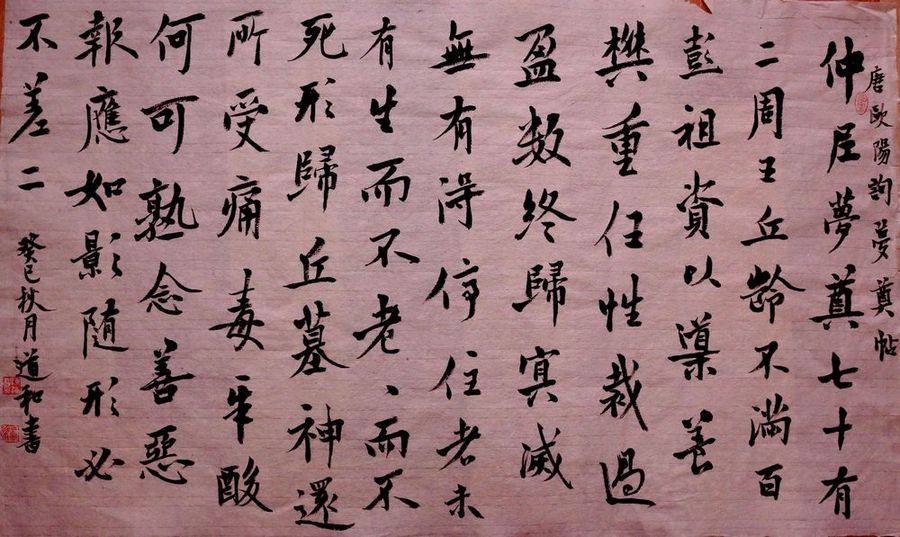 唐歐陽詢夢奠帖
仲尼夢奠七十有
二周王九齡不滿百
彭祖資以導養
樊重任性裁過
盈数終歸冥滅
無有得停住者未
有生而不老、而不
死形歸丘墓神還
所受痛毒辛酸
何可熟念善惡
報應如影随形必
不差二
癸巳秋月道和書